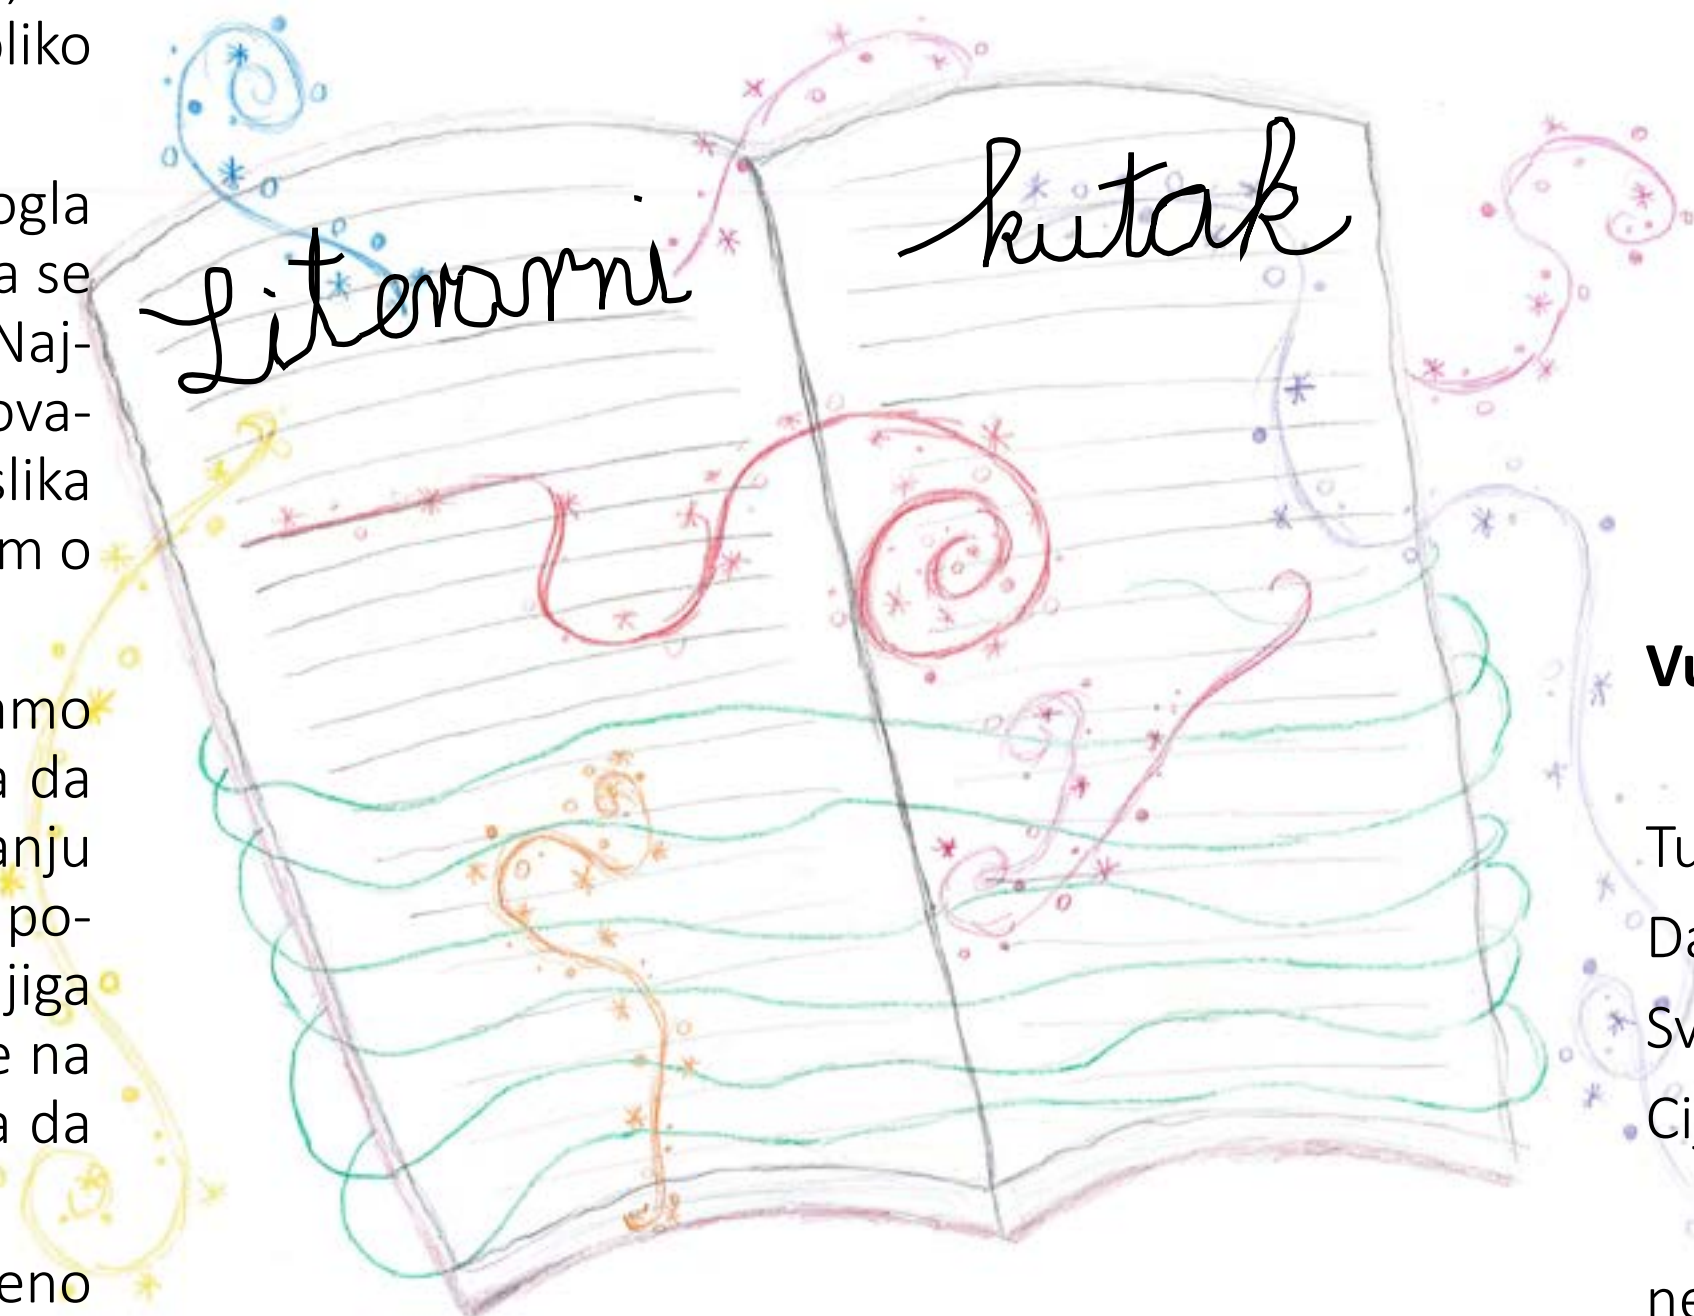 oliko
ogla
a se
Naj-
ova-
slika
m o
amo
a da
anju
po-
jiga
e na
a da
eno
Literarni kutak
Vu
Tu
Da
Sv
Cij
ne